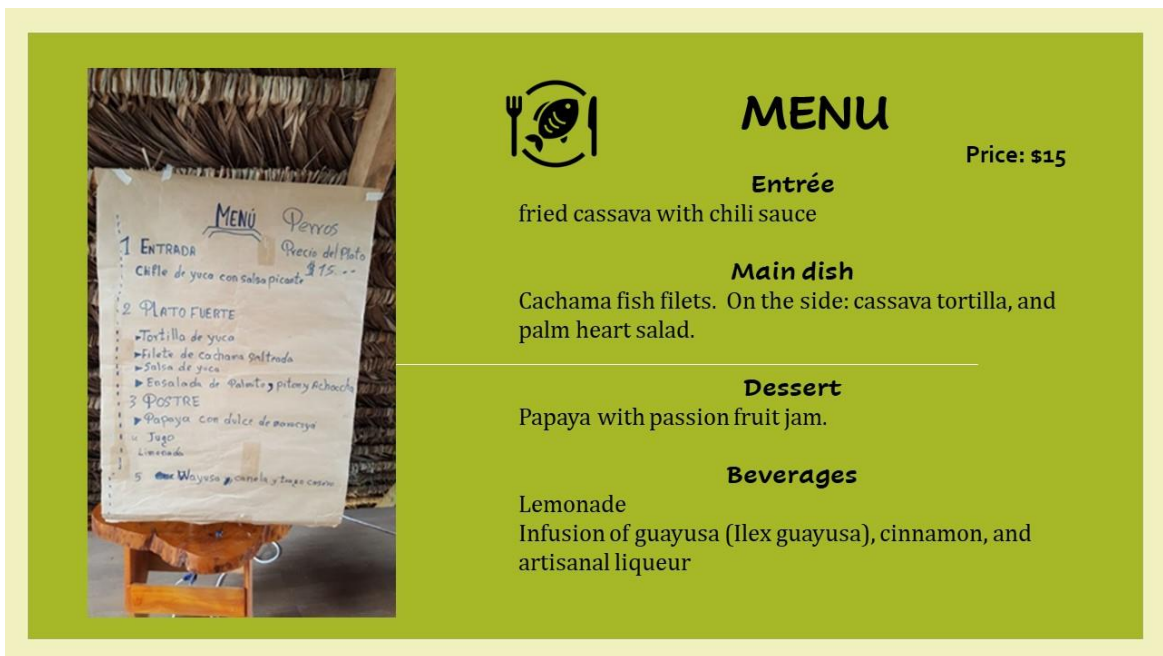 MENÚ Perros
1 ENTRADA Precio del Plato
Chifle de yuca con salsa picante $15.--
2 PLATO FUERTE
▸Tortilla de yuca
▸Filete de cachama
▸Salsa de yuca
▸Ensalada de Palmito y piton y Achoccha
3 POSTRE
▸Papaya con dulce de maracuya
Jugo
Limonada
5 Wayusa y canela y
MENU
Price: $15
Entrée
fried cassava with chili sauce
Main dish
Cachama fish filets. On the side: cassava tortilla, and
palm heart salad.
Dessert
Papaya with passion fruit jam.
Beverages
Lemonade
Infusion of guayusa (Ilex guayusa), cinnamon, and
artisanal liqueur